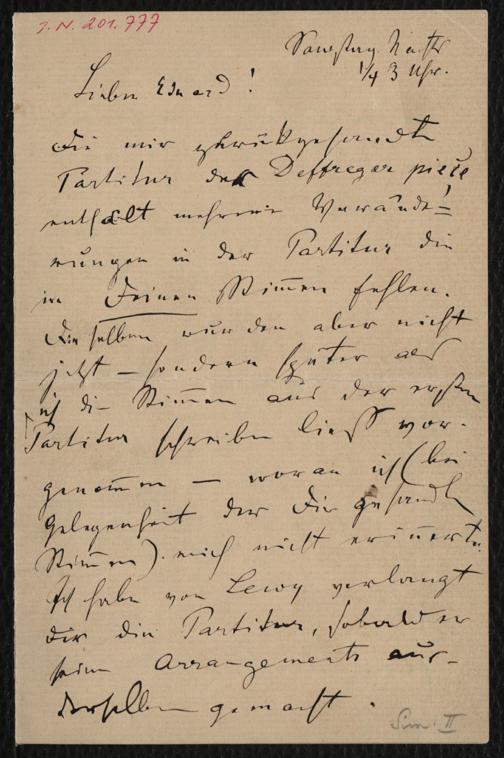 J. N. 201.777
Samstag Nachts
1/4 3 Uhr.
Lieber Eduard!
Die mir zurückgesandte
Partitur der Deffreger pieçe
enthält mehrere Verände-
rungen in der Partitur die
in Deinen Stimmen fehlen.
Dieselben wurden aber nicht
jetzt – sondern später als
ich die Stimmen aus der ersten
Partitur schreiben liess vor-
genommen – woran ich (bei
Gelegenheit der Dir gesandten
Stimmen) mich nicht erinnerte.
Ich habe von Lewy verlangt
Dir die Partitur, sobald er
seine Arrangements aus
derselben gemacht.
Sim: II